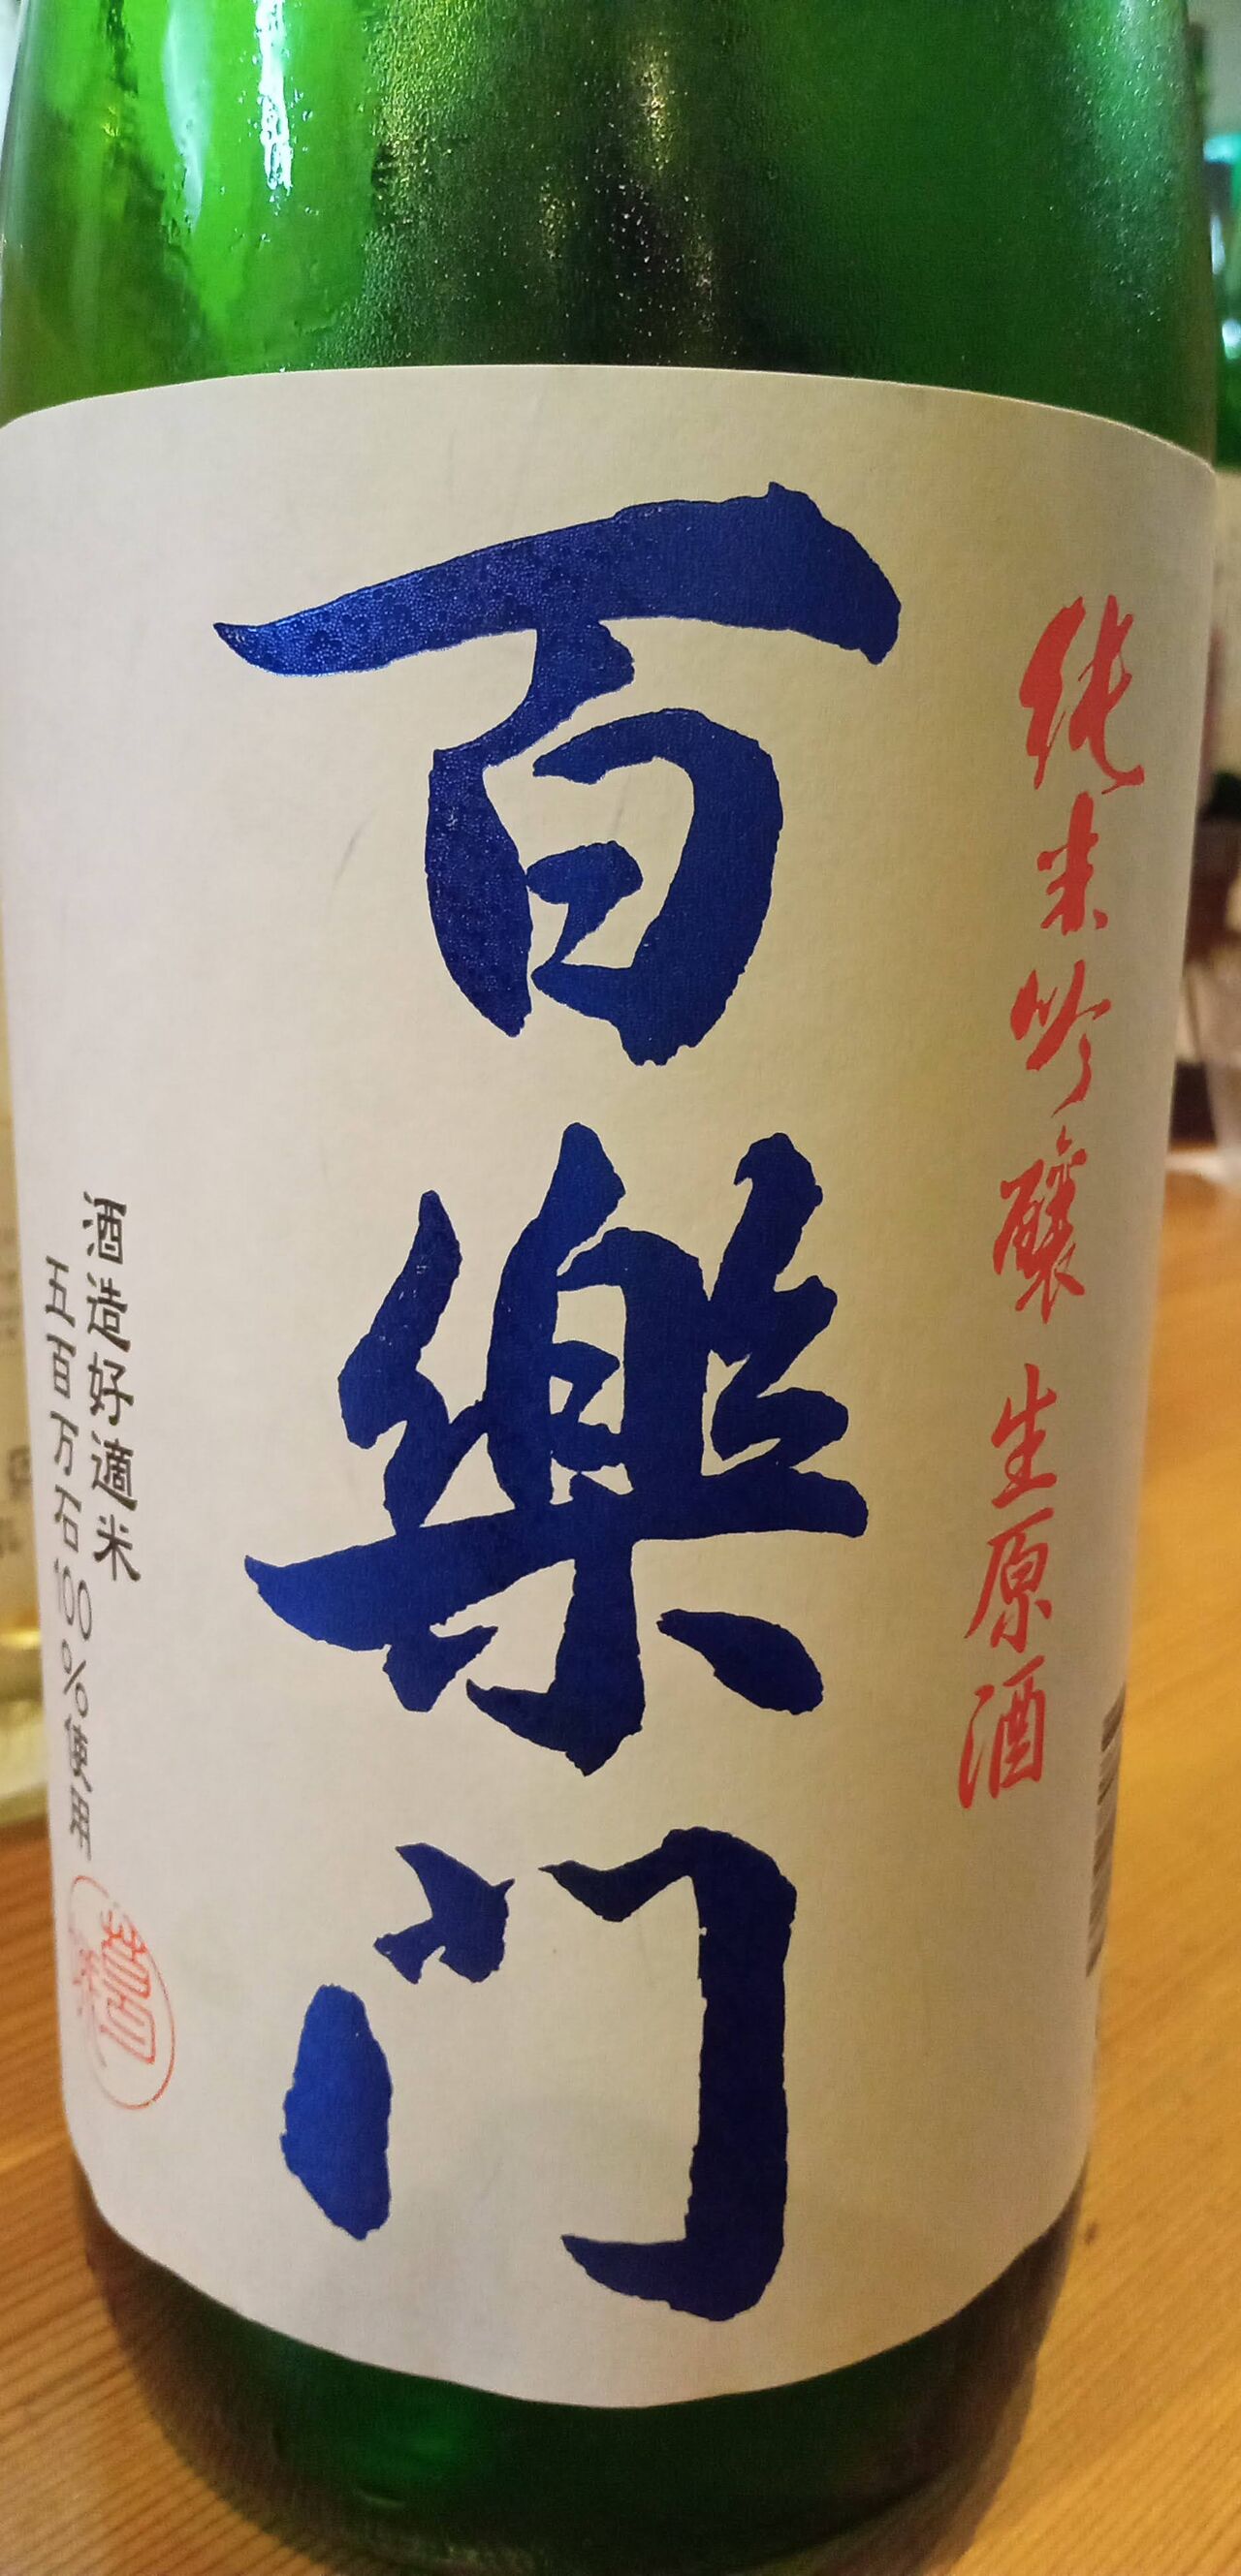 純米吟醸 生原酒
百樂门
酒造好適米
五百万石100%使用